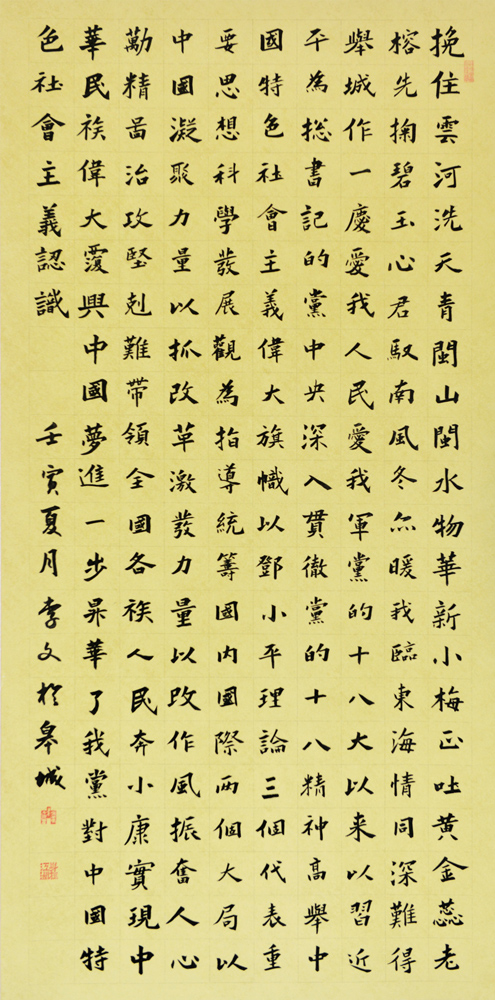 挽住雲河洗天青閩山閩水物華新小梅正吐黄金蕊老
榕先掬碧玉心君馭南風冬亦暖我臨東海情同深難得
舉城作一慶愛我人民愛我軍黨的十八大以来以習近
平為總書記的黨中央深入貫徹黨的十八精神高舉中
國特色社會主義偉大旗幟以鄧小平理論三個代表重
要思想科學發展觀為指導統籌國内國際两個大局以
中國凝聚力量以抓改革激發力量以改作風振奮人心
勵精啚治攻堅剋難帶領全國各族人民奔小康實現中
華民族偉大復興中國夢進一步昇華了我黨對中國特
色社會主義認識 壬寅夏月李文於皋城